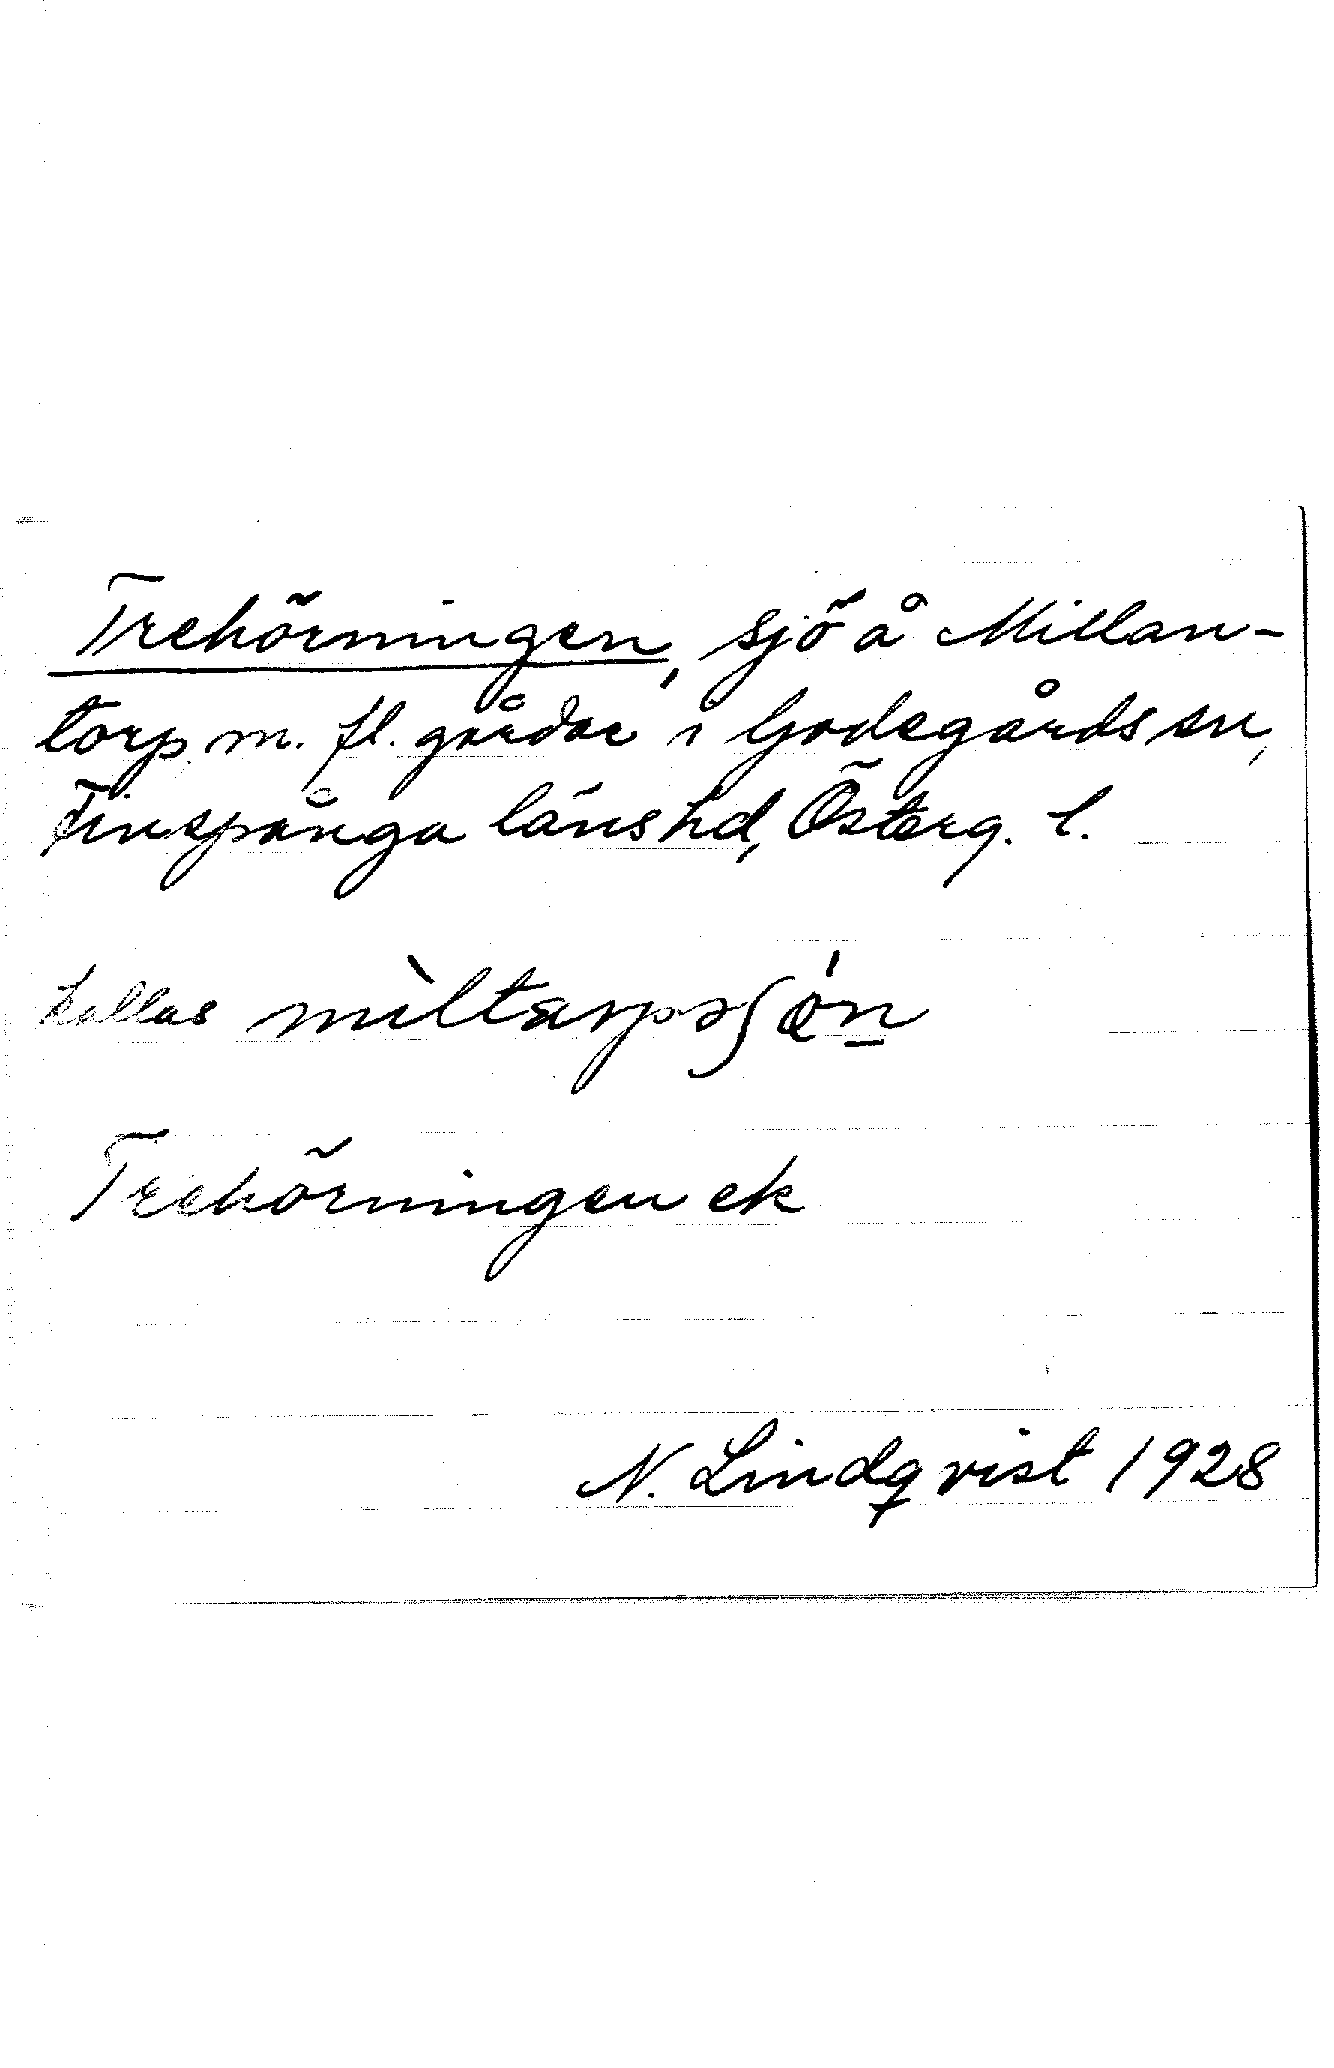 Trehörningen, sjö å Millan-
torp m. fl. gårdar i Godegårds sn,
Finspånga läns hd, Österg. l.
kallas mìltarpsʃǿn
Trehörningen ek
N. Lindqvist 1928